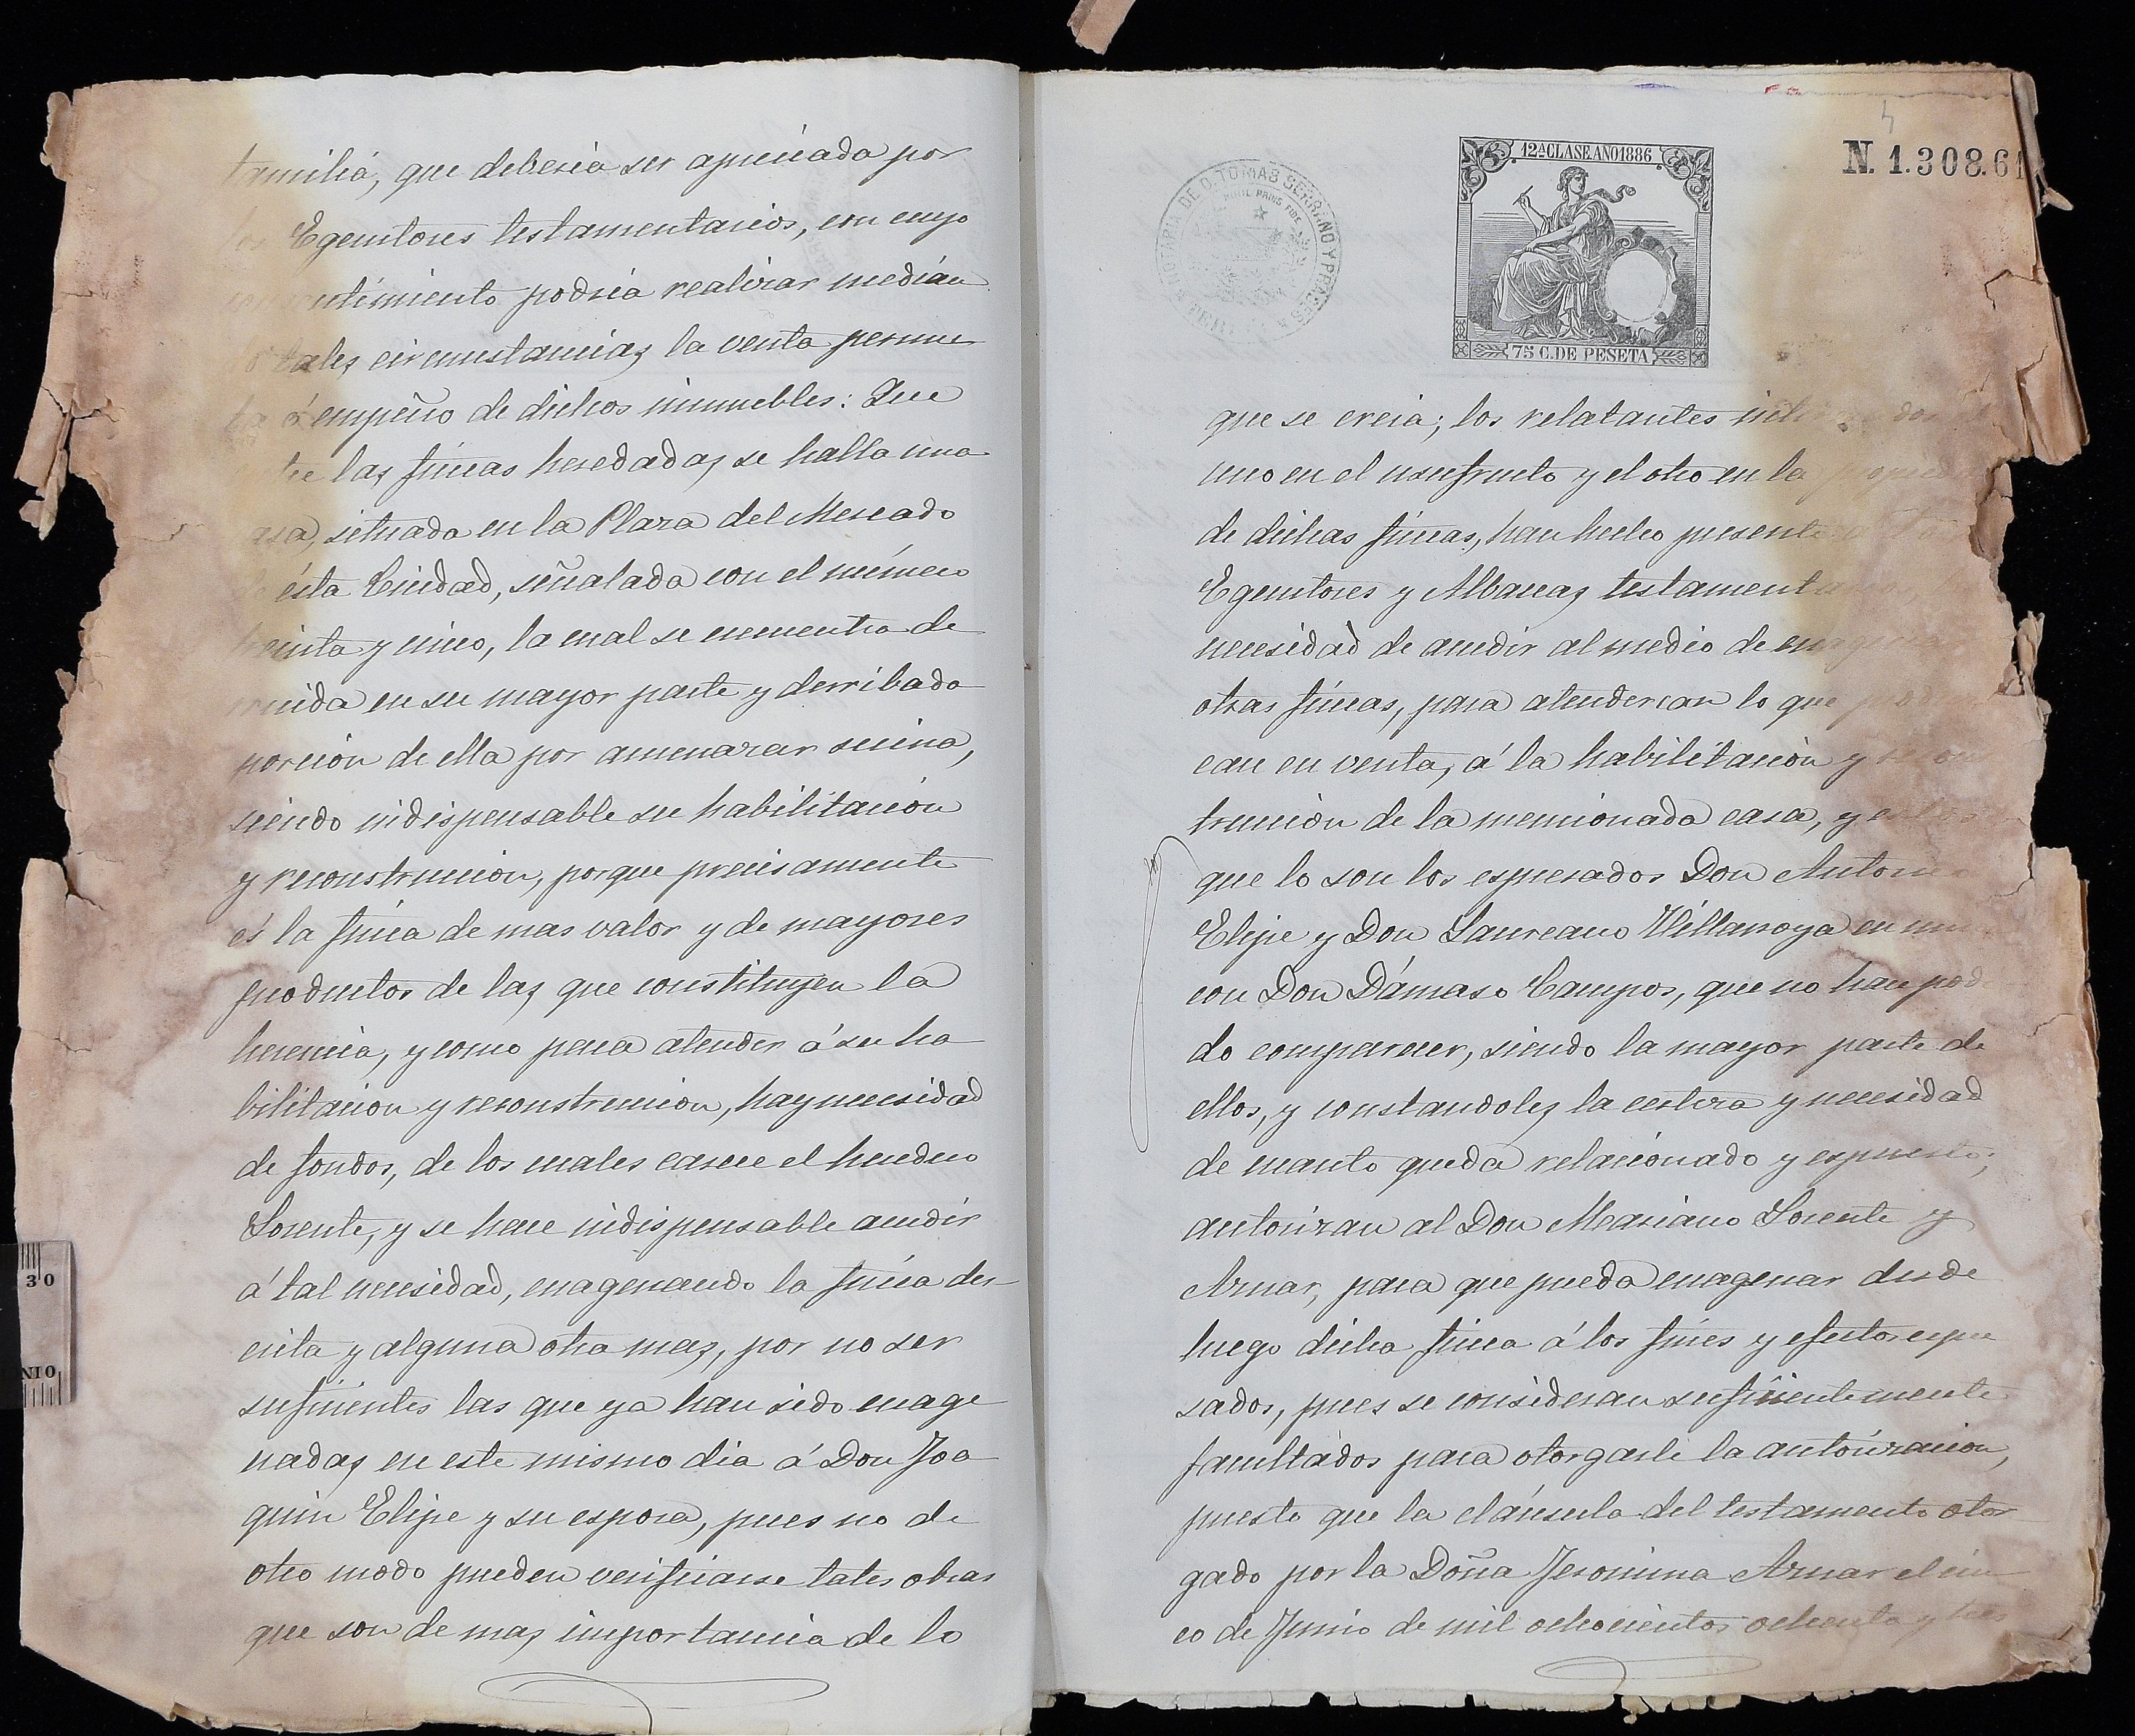 familia, que deberia ser apreciada por
los Egecutores testamentarios, con cuyo
consentimiento podria realizar median
tales circunstancias la venta permu
ta ó empeño de dichos inmuebles: Que
las fincas heredadas se halla una
casa, situada en la Plaza del Mercado
de ésta Ciudad, señalada con el número
treinta y cinco, la cual se encuentra de
rruida en su mayor parte y derribada
porción de ella por amenazar ruina,
siendo indispensable su habilitacion
y reconstruccion, porque precisamente
es la finca de mas valor y de mayores
productos de las que constituyen la
herencia, y como para atender á su ha
bilitacion y reconstruccion, hay necesidad
de fondos, de los cuales carece el heredero
Lorente, y se hace indispensable acudir
á tal necesidad, enagenando la finca des
crita y alguna otra mas, por no ser
suficientes las que ya han sido enage
nadas en este mismo dia á Don Joa
quin Elipe y su esposa, pues no de
otro modo pueden verificarse tales obras
que son de mas importancia de lo
NOTARIA DE D. TOMAS SERRANO Y PRADES
NIHIL PRIUS FIDE
12ª CLASE. AÑO 1886
75 C. DE PESETA
4
N. 1.308.61
que se creia; los relatantes
uno en el usufructo y el otro en la
de dichas fincas, han hecho presente
Egecutores y Albaceas testamentarios
necesidad de acudir al medio de
otras fincas, para atender con lo que
can en venta, á la habilitación y recons
truccion de la mencionada casa, y estos
que lo son los espresados Don Antonio
Elipe y Don Laureano Villarroya en
con Don Dámaso Campos, que no han podi
do comparecer, siendo la mayor parte de
ellos, y constandoles la certeza y necesidad
de cuanto queda relacionado y expuesto;
autorizan al Don Mariano Lorente y
Aznar, para que pueda enagenar desde
luego dicha finca á los fines y efectos espre
sados, pues se consideran suficientemente
facultados para otorgarle la autorizacion,
puesto que la cláusula del testamento otor
gado por la Doña Jeronima Aznar el cin
co de Junio de mil ochocientos ochenta y tres
30